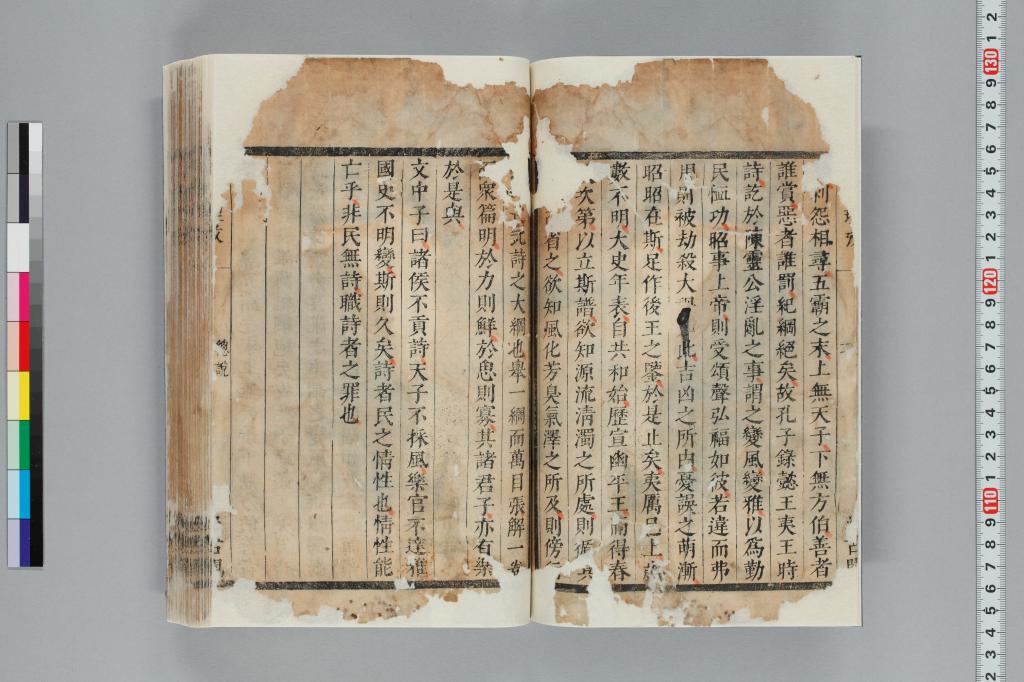 利怨相尋五霸之末上無天子下無方伯善者
誰賞惡者誰罰紀綱絕矣故孔子錄懿王夷王時
詩訖於陳靈公淫亂之事謂之變風變雅以爲勤
民恤功昭事上帝則受頌聲弘福如彼若違而弗
用則被劫殺大 此吉凶之所由憂誤之萌漸
昭昭在斯足作後王之鑒於是止矣夷厲已上
數不明大史年表自共和始歷宣幽平王而得春
次第以立斯譜欲知源流清濁之所處則循其
省之欲知風化芳臭氣澤之所及則傍
詩之大綱也舉一綱而萬目張解一
衆篇明於力則鮮於思則寡其諸君子亦有樂
於是與
文中子曰諸侯不貢詩天子不採風樂官不達雅
國史不明變斯則久矣詩者民之情性也情性能
亡乎非民無詩職詩者之罪也
總說